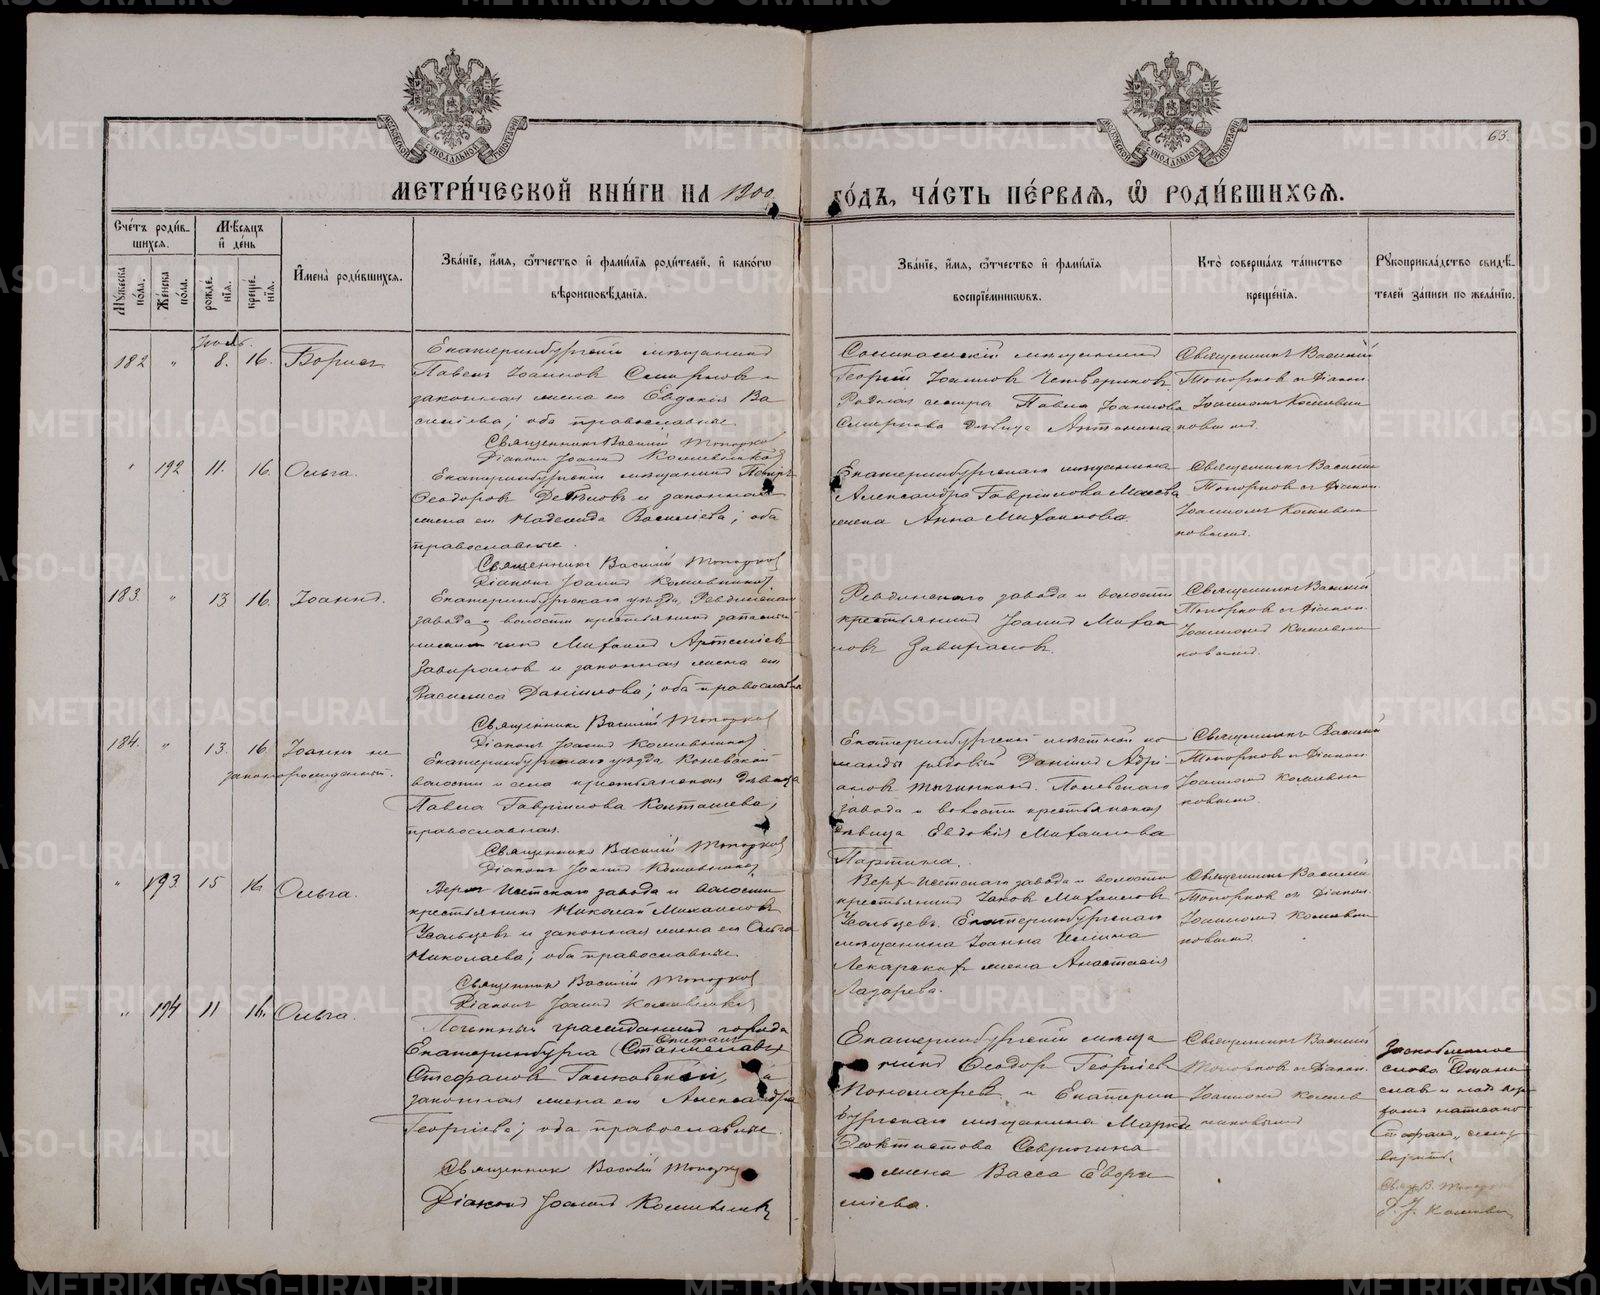 МОСКОВСКОЙ СѴНОДАЛЬНОЙ ТИПОГРАФІИ
МОСКОВСКОЙ СѴНОДАЛЬНОЙ ТИПОГРАФІИ
63.
МЕТРИ́ЧЕСКОЙ КНИ́ГИ НА 1900
ГО́ДЪ, ЧА́СТЬ ПЕ́РВАѦ, Ѡ҆ РОДИ́ВШИХСѦ.
Сче́тъ роди́вшихсѧ.
Мѣ́сѧцъ и҆ де́нь
Мꙋ́жеска по́ла.
Же́нска по́ла.
рожде́нїѧ.
креще́нїѧ.
И҆мена̀ роди́вшихсѧ.
Зва́нїе, и҆́мѧ, ѻ҆́тчество и҆ фами́лїѧ роди́телей, и҆ како́гѡ
вѣроисповѣ́данїѧ.
Зва́нїе, и҆́мѧ, ѻ҆́тчество и҆ фами́лїѧ
воспрїе́мникѡвъ.
Кто̀ соверша́лъ та́инство
креще́нїѧ.
Рꙋкоприкла́дство свидѣ́телей за́писи по жела́нїю.
Іюль.
182 " 8. 16. Борисъ
Екатеринбургскій мѣщанинъ
Павелъ Іоанновъ Смирновъ и
законная жена его Евдокія Ва
силіева; оба православные
Священникъ Василій Топорков
Діаконъ Іоаннъ Кожевников
Георгій Іоанновъ Четвериковъ
Родная сестра Павла Іоаннова
Смирнова дѣвица Антонина
Священникъ Василій
Топорковъ съ діакон.
Іоанномъ Кожевни
ковымъ.
" 192 11. 16. Ольга.
Екатеринбургскій мѣщанинъ
Ѳеодоровъ и законная
жена его Надежда Василіева; оба
православные.
Священникъ Василій Топорков
Діаконъ Іоаннъ Кожевников
Екатеринбургскаго мѣщанина
Александра Гавріилова
жена Анна Михаилова.
Священникъ Василій
Топорковъ съ діакон.
Іоанномъ Кожевни
ковымъ.
183. " 13 16. Іоаннъ.
Екатеринбургскаго уѣзда, Ревдинскаго
завода и волости крестьянинъ запасный
чинъ Михаилъ Артеміевъ
Завираловъ и законная жена его
Василиса Даніилова; оба православные
Священникъ Василій Топорков
Діаконъ Іоаннъ Кожевников
Ревдинскаго завода и волости
крестьянинъ Іоаннъ Михаи
ловъ Завираловъ.
Священникъ Василій
Топорковъ съ діакон.
Іоанномъ Кожевни
ковымъ.
184. " 13. 16 Іоаннъ не
законнорожденный.
Екатеринбургскаго уѣзда Коневской
волости и села крестьянская дѣвица
Павла Гавріилова
православная.
Священникъ Василій Топорков
Діаконъ Іоаннъ Кожевников
Екатеринбургской мѣстной ко
манды рядовый Даніилъ Адрі
ановъ Полевскаго
завода и волости крестьянская
дѣвица Евдокія Михаилова
Партина.
Священникъ Василій
Топорковъ съ діакон.
Іоанномъ Кожевни
ковымъ.
" 193. 15 16 Ольга.
Верх Исетскаго завода и волости
крестьянинъ Николай Михаиловъ
Усольцевъ и законная жена его Ольга
Николаева; оба православные.
Священникъ Василій Топорков
Діаконъ Іоаннъ Кожевников
Верх Исетскаго завода и волости
крестьянинъ Іаковъ Михаиловъ
Усольцевъ. Екатеринбургскаго
мѣщанина Іоанна Иліина
жена Анастасія
Лазарева.
Священникъ Василій
Топорковъ съ діакон.
Іоанномъ Кожевни
ковымъ.
" 194 11 16. Ольга.
Почетный гражданинъ города
Стефанъ
Екатеринбурга (Станиславъ)
Стефановъ и
законная жена его Александра
Георгіева; оба православные.
Священникъ Василій Топорков
Діаконъ Іоаннъ Кожевников
Екатеринбургскій мѣща
нинъ Ѳеодоръ Георгіевъ
Пономаревъ и Екатерин
бургскаго мѣщанина Марка
Ѳеоктистова Севрюгина
жена Васса
Священникъ Василій
Топорковъ съ діакон.
Іоанномъ Кожев
никовымъ
Заскобленное
слово Стани
слав и над
написано
Стефанъ,
вѣрить.
Свящ. В. Топорков
Д. І. Кожевн
METRIKI.GASO-URAL.RU